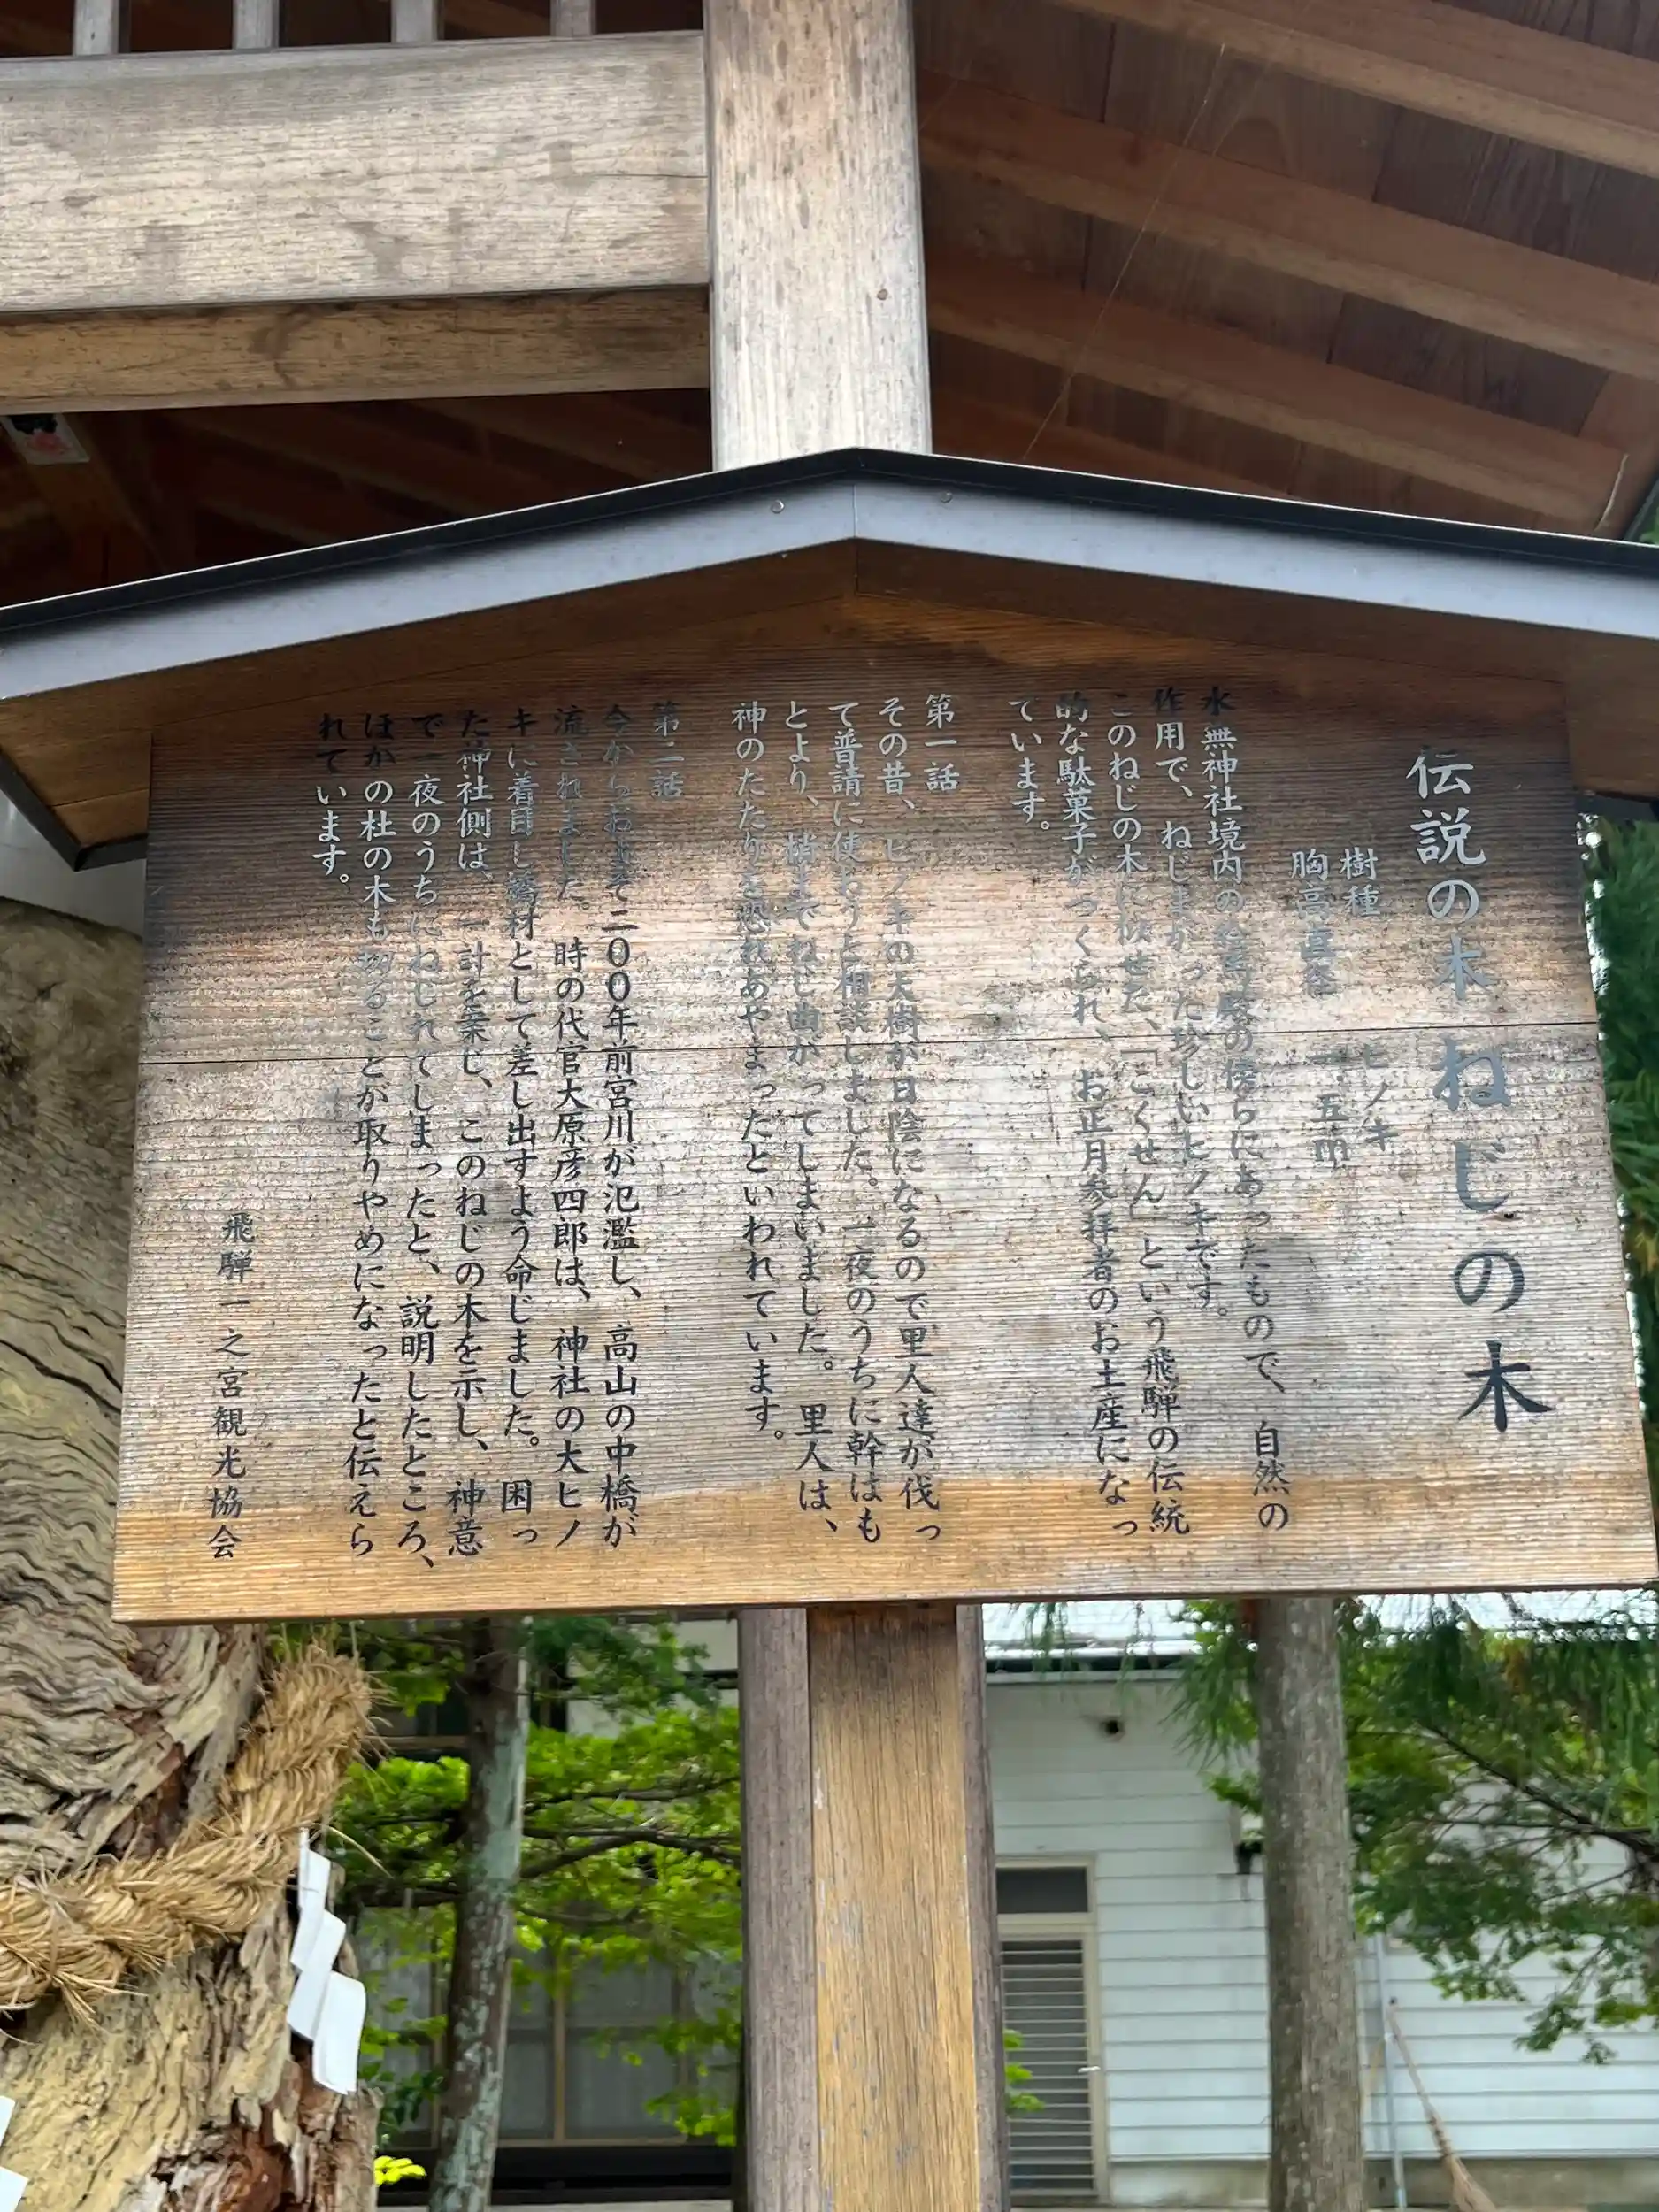 伝説の木 ねじの木
樹種 ヒノキ
胸高直径 一・五㎡
水無神社境内の絵馬殿の傍らにあったもので、自然の
作用で、ねじまがった珍しいヒノキです。
このねじの木に似せた、「こくせん」という飛騨の伝統
的な駄菓子がつくられ、お正月参拝者のお土産になっ
ています。
第一話
その昔、ヒノキの大樹が日陰になるので里人達が伐っ
て普請に使おうと相談しました。一夜のうちに幹はも
とより、梢までねじ曲がってしまいました。里人は、
神のたたりを恐れあやまったといわれています。
第二話
今からおよそ二〇〇年前宮川が氾濫し、高山の中橋が
流されました。時の代官大原彦四郎は、神社の大ヒノ
キに着目し橋材として差し出すよう命じました。困っ
た神社側は、一計を案じ、このねじの木を示し、神意
で一夜のうちにねじれてしまったと、説明したところ、
ほかの杜の木も切ることが取りやめになったと伝えら
れています。
飛騨一之宮観光協会